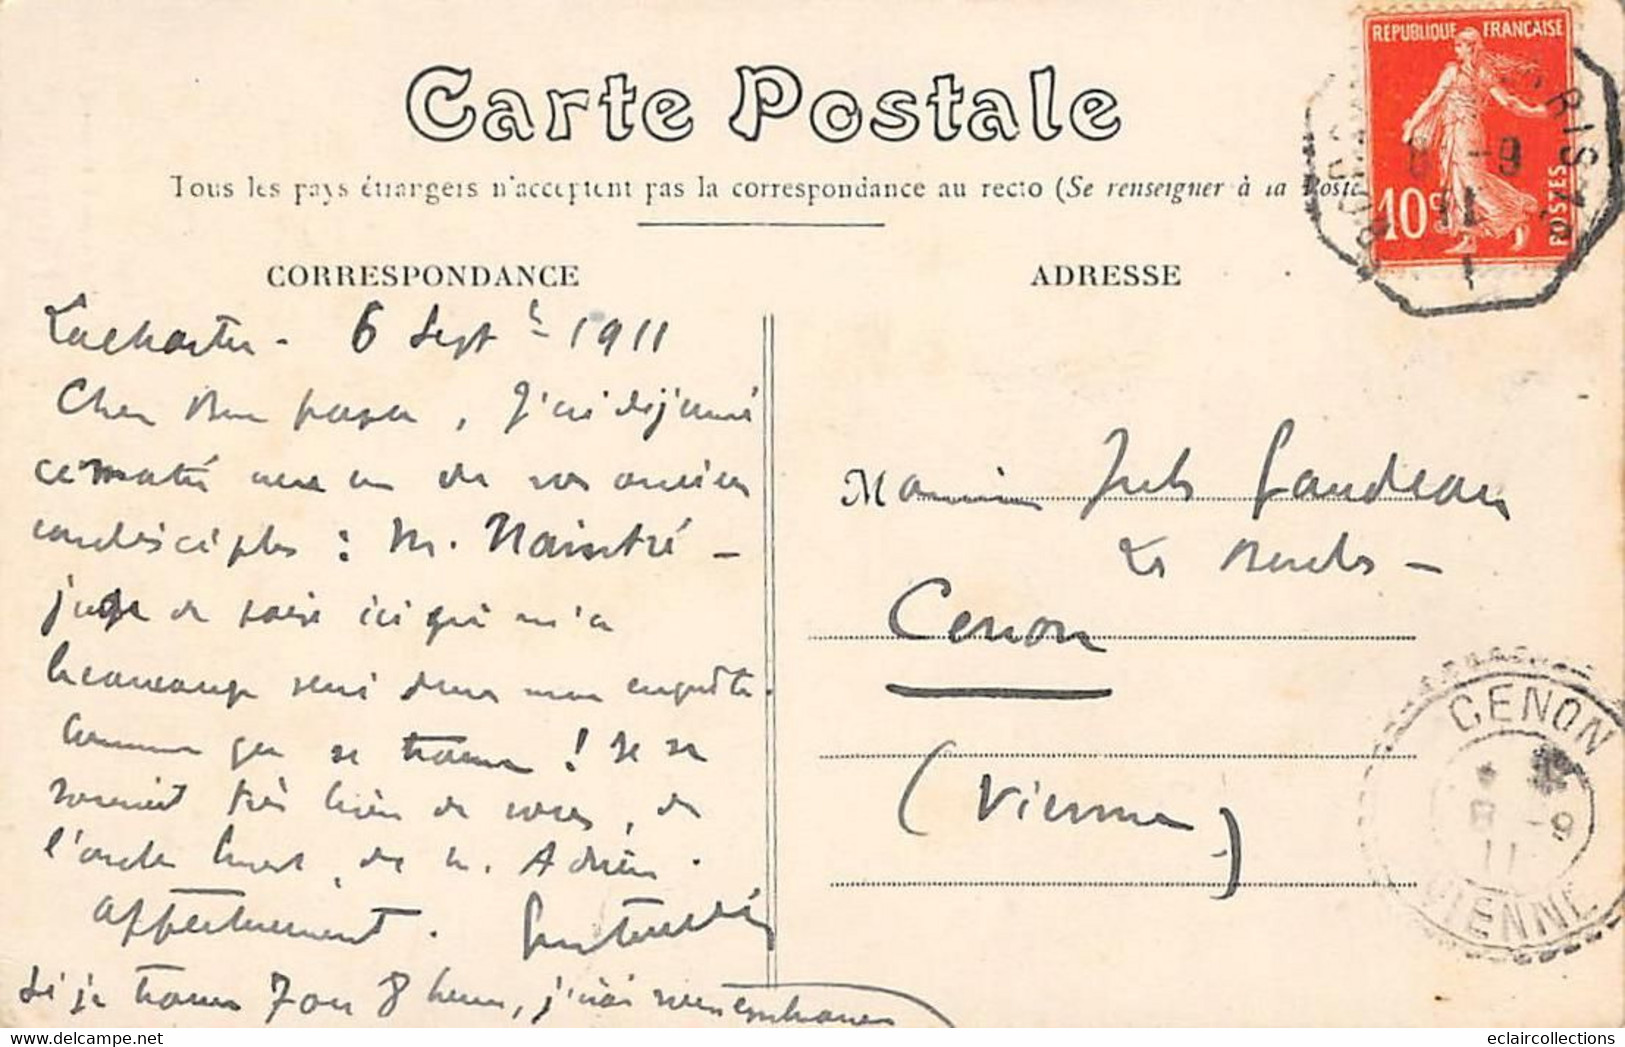 Carte Postale
Tous les pays étrangers n'acceptent pas la correspondance au recto (Se renseigner à la Poste
CORRESPONDANCE
ADRESSE
REPUBLIQUE FRANÇAISE
10c
POSTES
8 -9
11
6 Sept 1911
Cher Bon papa, j'ai déjeuné
ce matin avec un de vos anciens
condisciples : M. Naintré -
juge de paix ici qui m'a
beaucoup servi dans mon enquête.
Comme ça se trouve ! Il se
souvient très bien de vous, de
l'oncle de M. Adrien.
affectueusement.
Si je trouve 7 ou 8 heures, j'irai vous embrasser
Monsieur Jules Gaudeau
Les
Cenon
(Vienne)
CENON
8 -9
11
VIENNE
eclaircollections